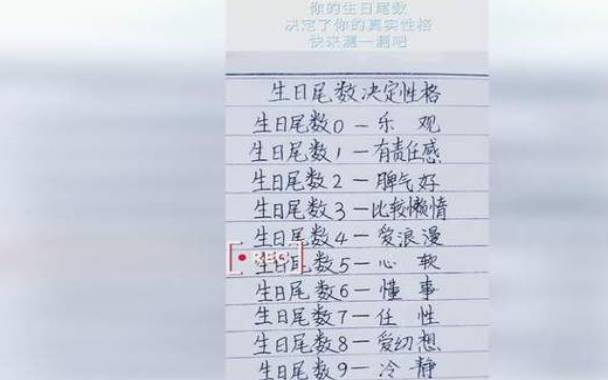 你的生日尾数
决定了你的真实性格
快来测一测吧
生日尾数决定性格
生日尾数0—乐 观
生日尾数1—有责任感
生日尾数2—脾气好
生日尾数3—比较懒惰
生日尾数4—爱浪漫
REC
生日尾数5—心 软
生日尾数6—懂 事
生日尾数7—任 性
生日尾数8—爱幻想
生日尾数9—冷 静